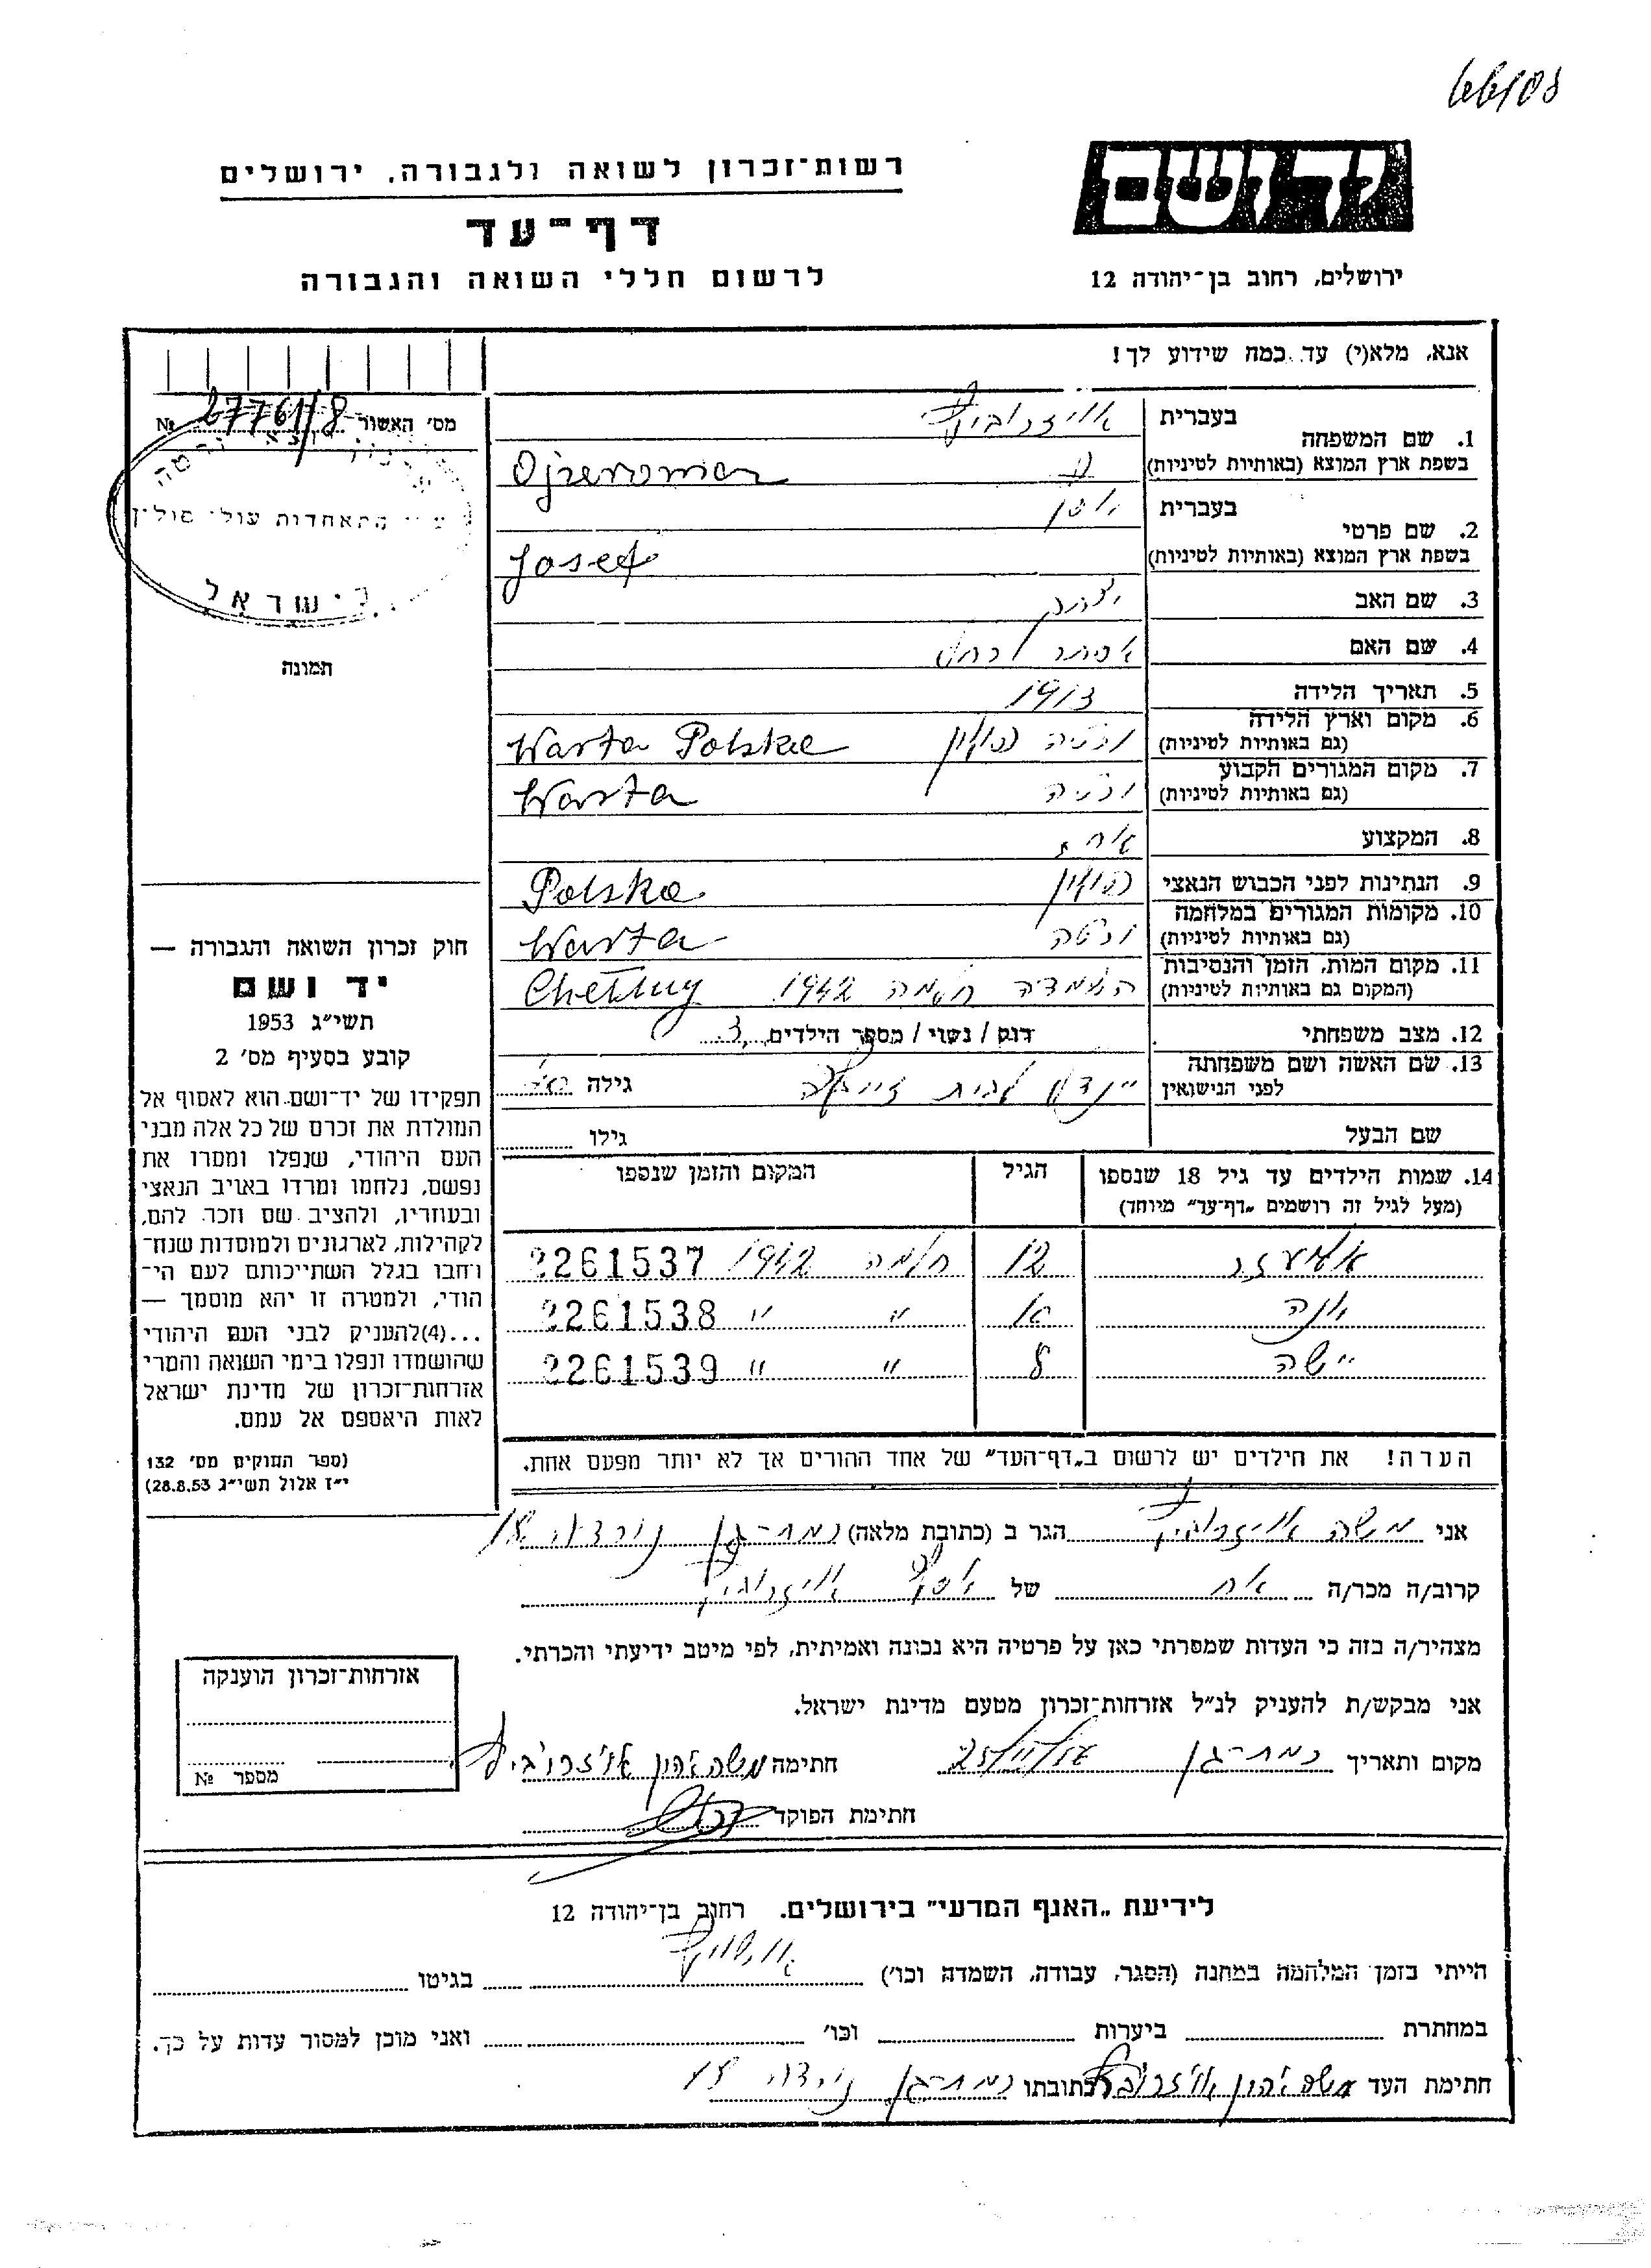 66108
יד ושם
ירושלים, רחוב בן־יהודה 12
רשות־זכרון לשואה ולגבורה, ירושלים
דף־עד
לרשום חללי השואה והגבורה
אנא, מלא(י) עד כמה שידוע לך!
מס' האשור 27761/8 №
התאחדות עולי פולין
בישראל
תמונה
1. שם המשפחה
בעברית
בשפת ארץ המוצא (באותיות לטיניות)
2. שם פרטי
בעברית יוסף
בשפת ארץ המוצא (באותיות לטיניות) Josef
3. שם האב יצחק
4. שם האם אסתר רחל
5. תאריך הלידה 1913
6. מקום וארץ הלידה
(גם באותיות לטיניות) ורטה פולין Warta Polska
7. מקום המגורים הקבוע
(גם באותיות לטיניות) ורטה Warta
8. המקצוע
9. הנתינות לפני הכבוש הנאצי פולין Polska
10. מקומות המגורים במלחמה
(גם באותיות לטיניות) ורטה Warta
11. מקום המות, הזמן והנסיבות
(המקום גם באותיות לטיניות) 1942
12. מצב משפחתי רווק / נשוי / מספר הילדים 3
13. שם האשה ושם משפחתה
לפני הנישואין גילה
שם הבעל גילו
14. שמות הילדים עד גיל 18 שנספו
(מעל לגיל זה רושמים „דף־עד" מיוחד)
הגיל
המקום והזמן שנספו
אליעזר 12 1942 2261537
יונה " " 2261538
8 " " 2261539
הערה! את הילדים יש לרשום ב„דף־העד" של אחד ההורים אך לא יותר מפעם אחת.
חוק זכרון השואה והגבורה —
יד ושם
תשי"ג 1953
קובע בסעיף מס' 2
תפקידו של יד־ושם הוא לאסוף אל
המולדת את זכרם של כל אלה מבני
העם היהודי, שנפלו ומסרו את
נפשם, נלחמו ומרדו באויב הנאצי
ובעוזריו, ולהציב שם וזכר להם,
לקהילות, לארגונים ולמוסדות שנח־
רחבו בגלל השתייכותם לעם הי־
הודי, ולמטרה זו יהא מוסמך —
...(4)להעניק לבני העם היהודי
שהושמדו ונפלו בימי השואה והמרי
אזרחות־זכרון של מדינת ישראל
לאות היאספם אל עמם.
(ספר החוקים מס' 132
י"ז אלול תשי"ג 28.8.53)
אני משה הגר ב (כתובת מלאה) רמת־גן
קרוב/ה מכר/ה אח של יוסף
מצהיר/ה בזה כי העדות שמסרתי כאן על פרטיה היא נכונה ואמיתית, לפי מיטב ידיעתי והכרתי.
אני מבקש/ת להעניק לנ"ל אזרחות־זכרון מטעם מדינת ישראל.
מקום ותאריך רמת־גן חתימה משה אהרן
חתימת הפוקד
אזרחות־זכרון הוענקה
מספר №
לידיעת „האגף המדעי" בירושלים. רחוב בן־יהודה 12
הייתי בזמן המלחמה במחנה (הסגר, עבודה, השמדה וכו') בגיטו
במחתרת ביערות וכו' ואני מוכן למסור עדות על כך.
חתימת העד משה אהרן כתובתו רמת־גן